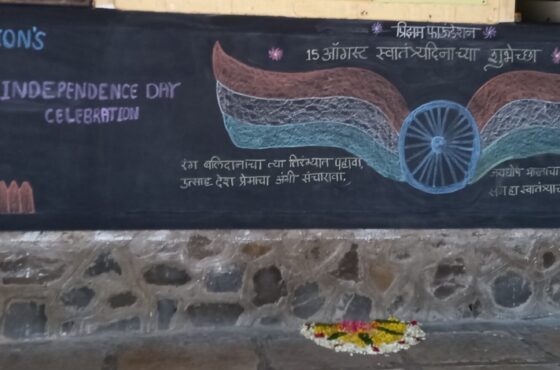 ON'S
INDEPENDENCE DAY
CELEBRATION
प्रिझम फाऊंडेशन
15 ऑगस्ट स्वातंत्र्यदिनाच्या शुभेच्छा
रंग बलिदानाचा त्या तिरंग्यात पहावा,
उत्साह देश प्रेमाचा अंगी संचारावा,